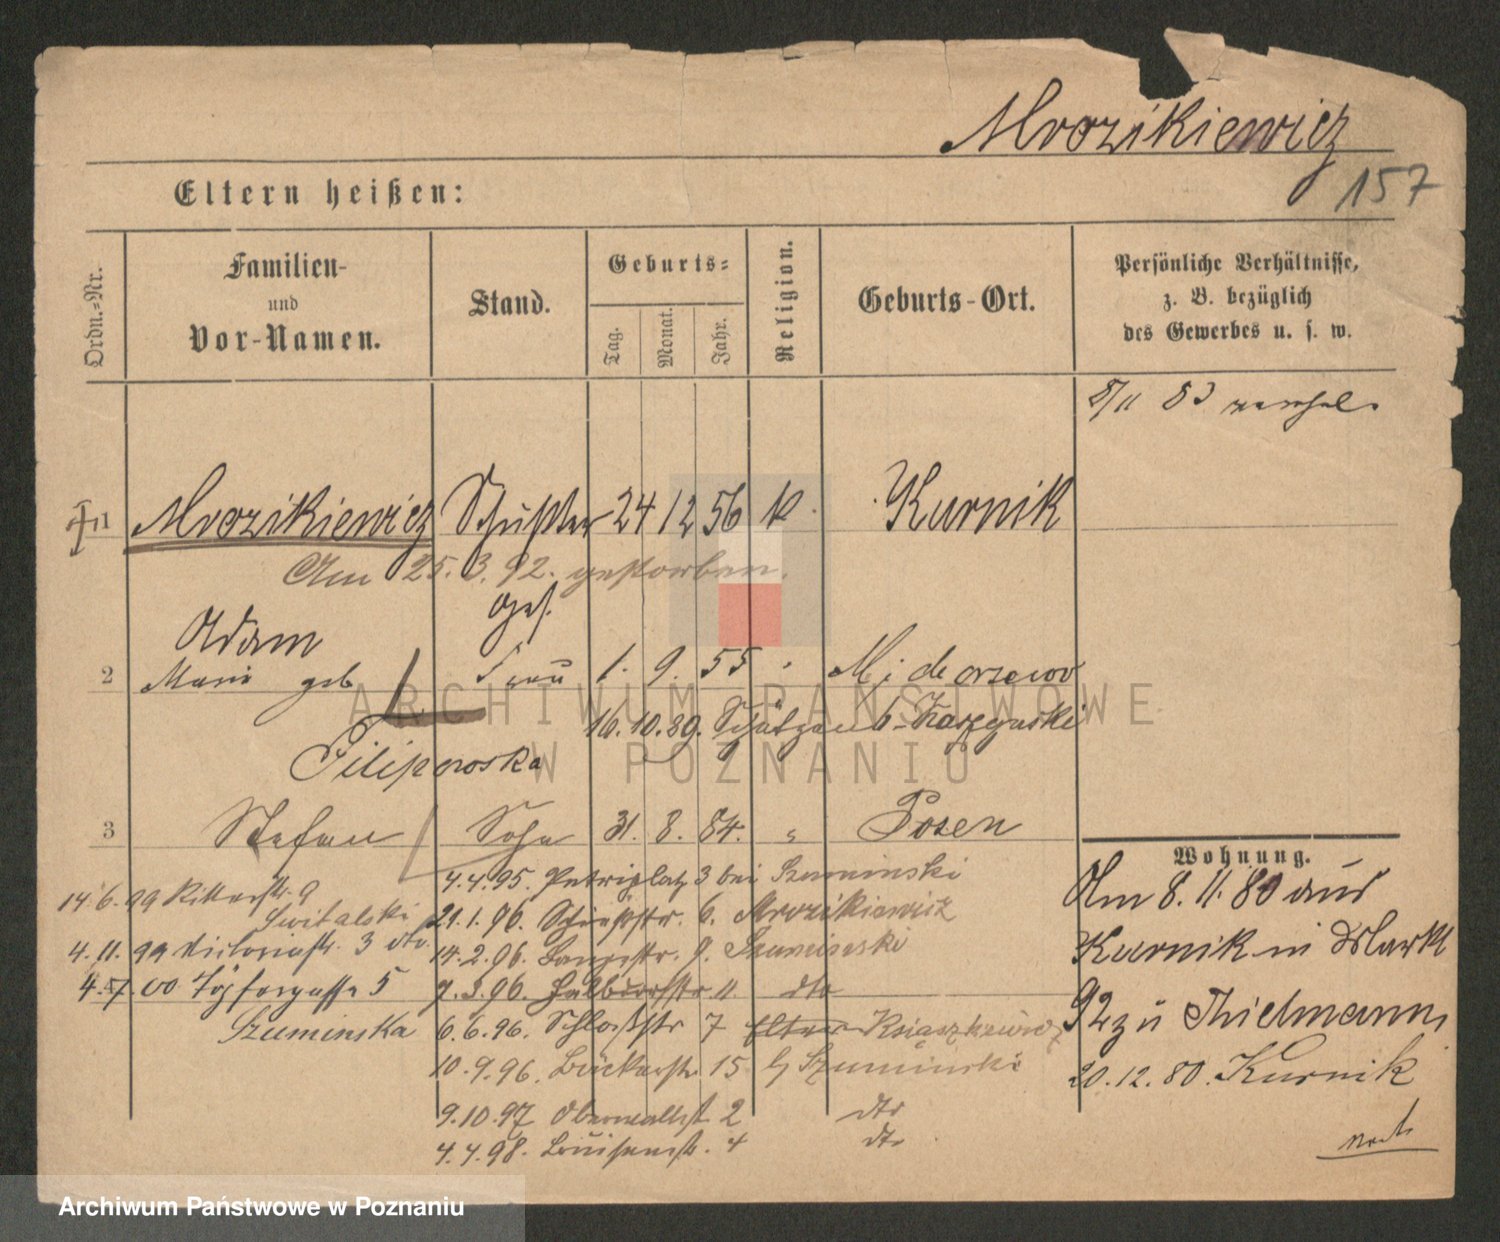 Mrozikiewicz
157
Eltern heißen:
Ordn.-Nr.
Familien-
und
Vor-Namen.
Stand.
Geburts-
Tag.
Monat.
Jahr.
Religion.
Geburts-Ort.
Persönliche Verhältnisse,
z. B. bezüglich
des Gewerbes u. s. w.
8/11 83
1 Mrozikiewicz Schuster 24 12 56 k. Kurnik
Am 25. 3. 92. gestorben.
Adam
2 Marie geb Frau 1. 9. 55
16.10.89.
Filipowska
3 Stefan Sohn 31. 8. 84. " Posen
Wohnung.
Am 8. 11. 80 aus
Kurnik in Markt
92 zu Thielmann,
20.12.80. Kurnik
4.4.95. Petriplatz 3 bei Szuminski
21.1.96. 6. Mrozikiewicz
14.2.96. Langestr. 9. Szuminski
9.3.96. Halbdorfstr 11. dto
6.6.96. Schloßstr 7
10.9.96. Bäckerstr. 15 b/ Szuminski
9.10.97 Oberwallst 2 dto
4.4.98. Louisenstr. 4 dto
14.6.99 Ritterstr. 9
Switalski
4.11.99 Victoriastr. 3 dto.
4.7.00 Töpfergasse 5
Szuminska
ARCHIWUM PAŃSTWOWE
W POZNANIU
Archiwum Państwowe w Poznaniu